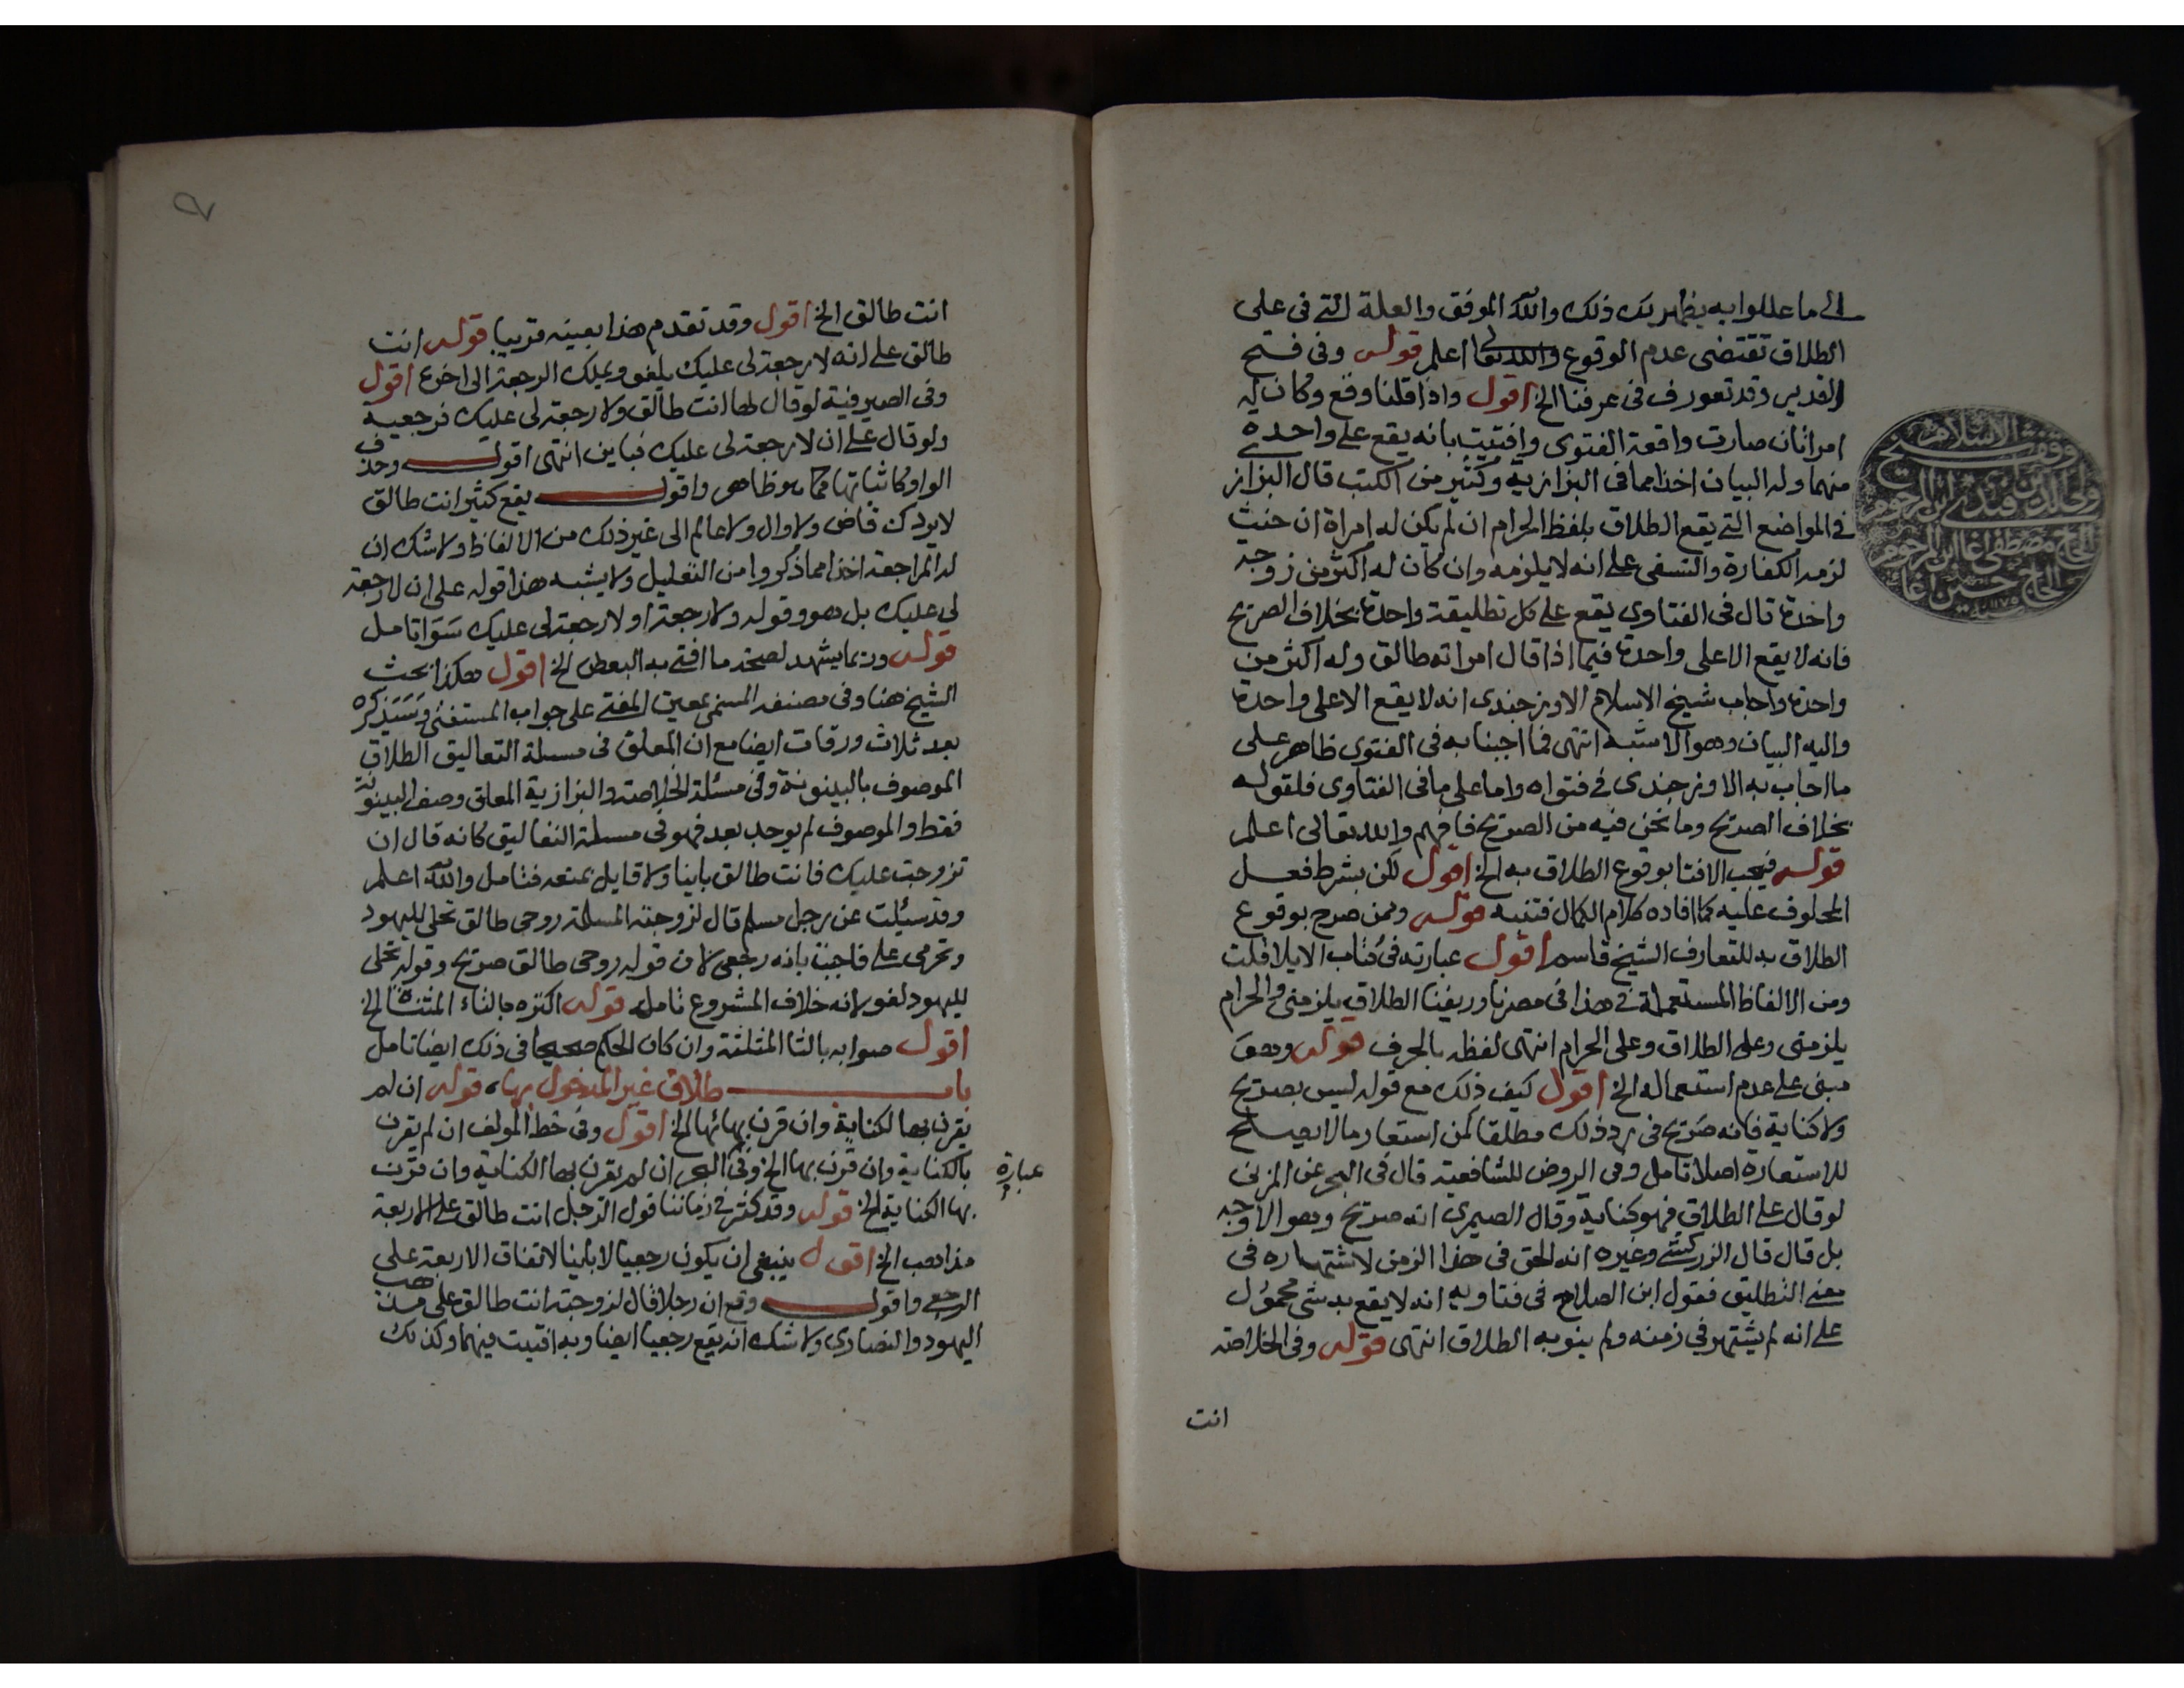 الى ما عللوا به يظهر لك ذلك والله الموفق والعلة التي في علي
الطلاق تقتضى عدم الوقوع والله تعالى اعلم قوله وفى فتح
القدير وقد تعورف فى عرفنا الخ اقول واذا قلنا وقع وكان له
امراتان صارت واقعة الفتوى وافتيت بانه يقع على واحدة
منهما وله البيان اخذا مما فى البزازية وكثير من الكتب قال البزاز
في المواضع التي يقع الطلاق بلفظ الحرام ان لم يكن له امراة ان حنث
لزمه الكفارة والنسفى على انه لا يلزمه وان كان له اكثر من زوجة
واحدة قال فى الفتاوى يقع على كل تطليقة واحدة بخلاف الصريح
فانه لا يقع الا على واحدة فيما اذا قال امراته طالق وله اكثر من
واحدة واجاب شيخ الاسلام الاوزجندى انه لا يقع الا على واحدة
واليه البيان وهو الاشبه انتهى فما اجبنا به فى الفتوى ظاهر على
ما اجاب به الاوزجندى في فتواه واما على ما فى الفتاوى فلقوله
بخلاف الصريح وما نحن فيه من الصريح فافهم والله تعالى اعلم
قوله فيجب الافتا بوقوع الطلاق به الخ اقول لكن بشرط فعل
المحلوف عليه كما افاده كلام الكمال فتنبه قوله وممن صرح بوقوع
الطلاق به للتعارف الشيخ قاسم اقول عبارته فى كتاب الايلا قلت
ومن الالفاظ المستعملة في هذا فى مصرنا وريفنا الطلاق يلزمني والحرام
يلزمنى وعلى الطلاق وعلى الحرام انتهى لفظه بالحرف قوله وهو
مبنى على عدم استعماله الخ اقول كيف ذلك مع قوله ليس بصريح
ولا كناية فانه صريح فى رد ذلك مطلقا كمن استعار ما لا يصلح
للاستعارة اصلا تامل وفى الروض للشافعية قال فى البحر عن المزنى
لو قال على الطلاق فهو كناية وقال الصيمرى انه صريح وهو الاوجه
بل قال قال الزركشي وغيره انه الحق فى هذا الزمن لاشتهاره فى
معنى التطليق فقول ابن الصلاح فى فتاويه انه لا يقع به شى محمول
على انه لم يشتهر في زمنه ولم ينو به الطلاق انتهى قوله وفى الخلاصة
انت
وقف شيخ الاسلام
ولى الدين افندى ابن المرحوم
الحاج مصطفى اغا ابن المرحوم
الحاج حسين اغا
سنة ١١٧٥
انت طالق الخ اقول وقد تقدم هذا بعينه قريبا قوله انت
طالق على انه لا رجعة لى عليك يلغو ويملك الرجعة الى اخره اقول
وفى الصيرفية لو قال لها انت طالق ولا رجعة لى عليك فرجعية
ولو قال على ان لا رجعة لى عليك فباين انتهى اقول وحذف
الواو كاثباتها كما هو ظاهر واقول يقع كثيرا انت طالق
لا يردك قاض ولا وال ولا عالم الى غير ذلك من الالفاظ ولا شك ان
له المراجعة اخذا مما ذكروا من التعليل ولا يشبه هذا قوله على ان لا رجعة
لى عليك بل هو وقوله ولا رجعة او لا رجعة لى عليك سوا تامل
قوله وربما يشهد لصحة ما افتى به البعض الخ اقول هكذا بحث
الشيخ هنا وفى مصنفه المسمى بمعين المفتى على جواب المستفتى وسيذكره
بعد ثلاث ورقات ايضا مع ان المعلق فى مسئلة التعاليق الطلاق
الموصوف بالبينونة وفى مسئلة الخلاصة والبزازية المعلق وصف البينونة
فقط والموصوف لم يوجد بعد فهو فى مسئلة التعاليق كانه قال ان
تزوجت عليك فانت طالق باينا ولا قايل بمنعه فتامل والله اعلم
وقد سئيلت عن رجل مسلم قال لزوجته المسلمة روحى طالق تحلى لليهود
وتحرمى على فاجبت بانه رجعى لان قوله روحى طالق صريح وقوله تحلى
لليهود لغو لانه خلاف المشروع تامل قوله اكتره بالتاء المثناة الخ
اقول صوابه بالثا المثلثة وان كان الحكم صحيحا فى ذلك ايضا تامل
باب طلاق غير المدخول بها، قوله ان لم
يقرن بها الكناية وان قرن بها ئها الخ اقول وفى خط المولف ان لم يقرن
بالكناية وان قرن بها الخ وفى البحر ان لم يقرن بها الكناية وان قرن
بها الكناية الخ قوله وقد كثر في زماننا قول الرجل انت طالق على الاربعة
مذاهب الخ اقول ينبغى ان يكون رجعيا لا باينا لاتفاق الاربعة على
الرجعي واقول وقع ان رجلا قال لزوجته انت طالق على مذهب
اليهود والنصارى ولا شك انه يقع رجعيا ايضا وبه افتيت فيهما وكذلك
عبارة